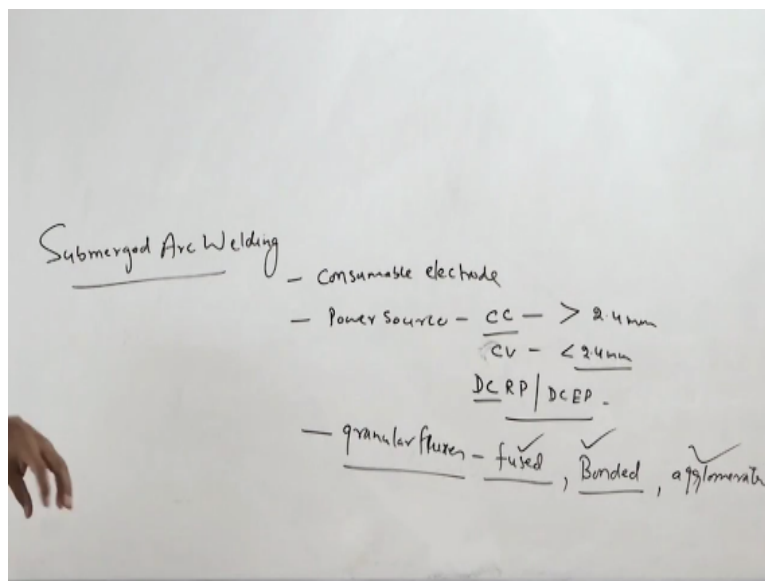 Submerged Arc Welding
- Consumable electrode
- Power Source - CC - > 2.4mm
CV - < 2.4mm
DCRP / DCEP.
- granular fluxes - fused, Bonded, agglomerate